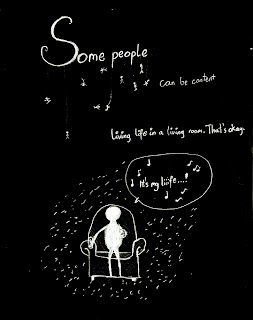 Some people
Can be content
Living life in a living room. That's okay.
It's my liiife....!